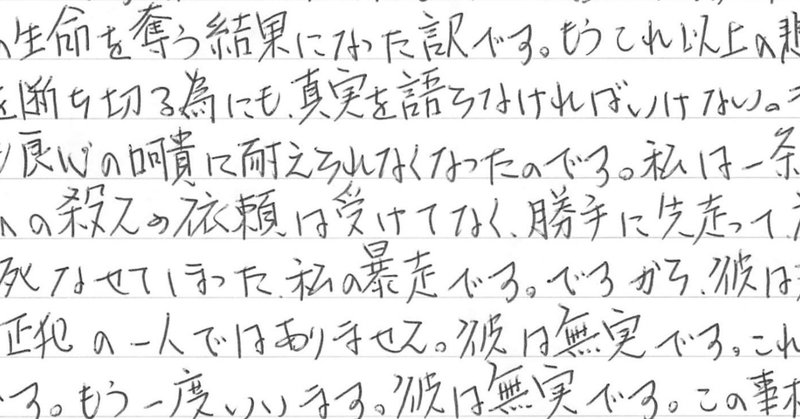 の生命を奪う結果になった訳です。もうこれ以上の悲
を断ち切る為にも、真実を語らなければいけない。
良心の呵責に耐えられなくなったのです。私は一条
の殺人の依頼は受けてなく、勝手に先走って、
死なせてしまった、私の暴走です。ですから、彼は
正犯の一人ではありません。彼は無実です。これ
す。もう一度いいます。彼は無実です。この事